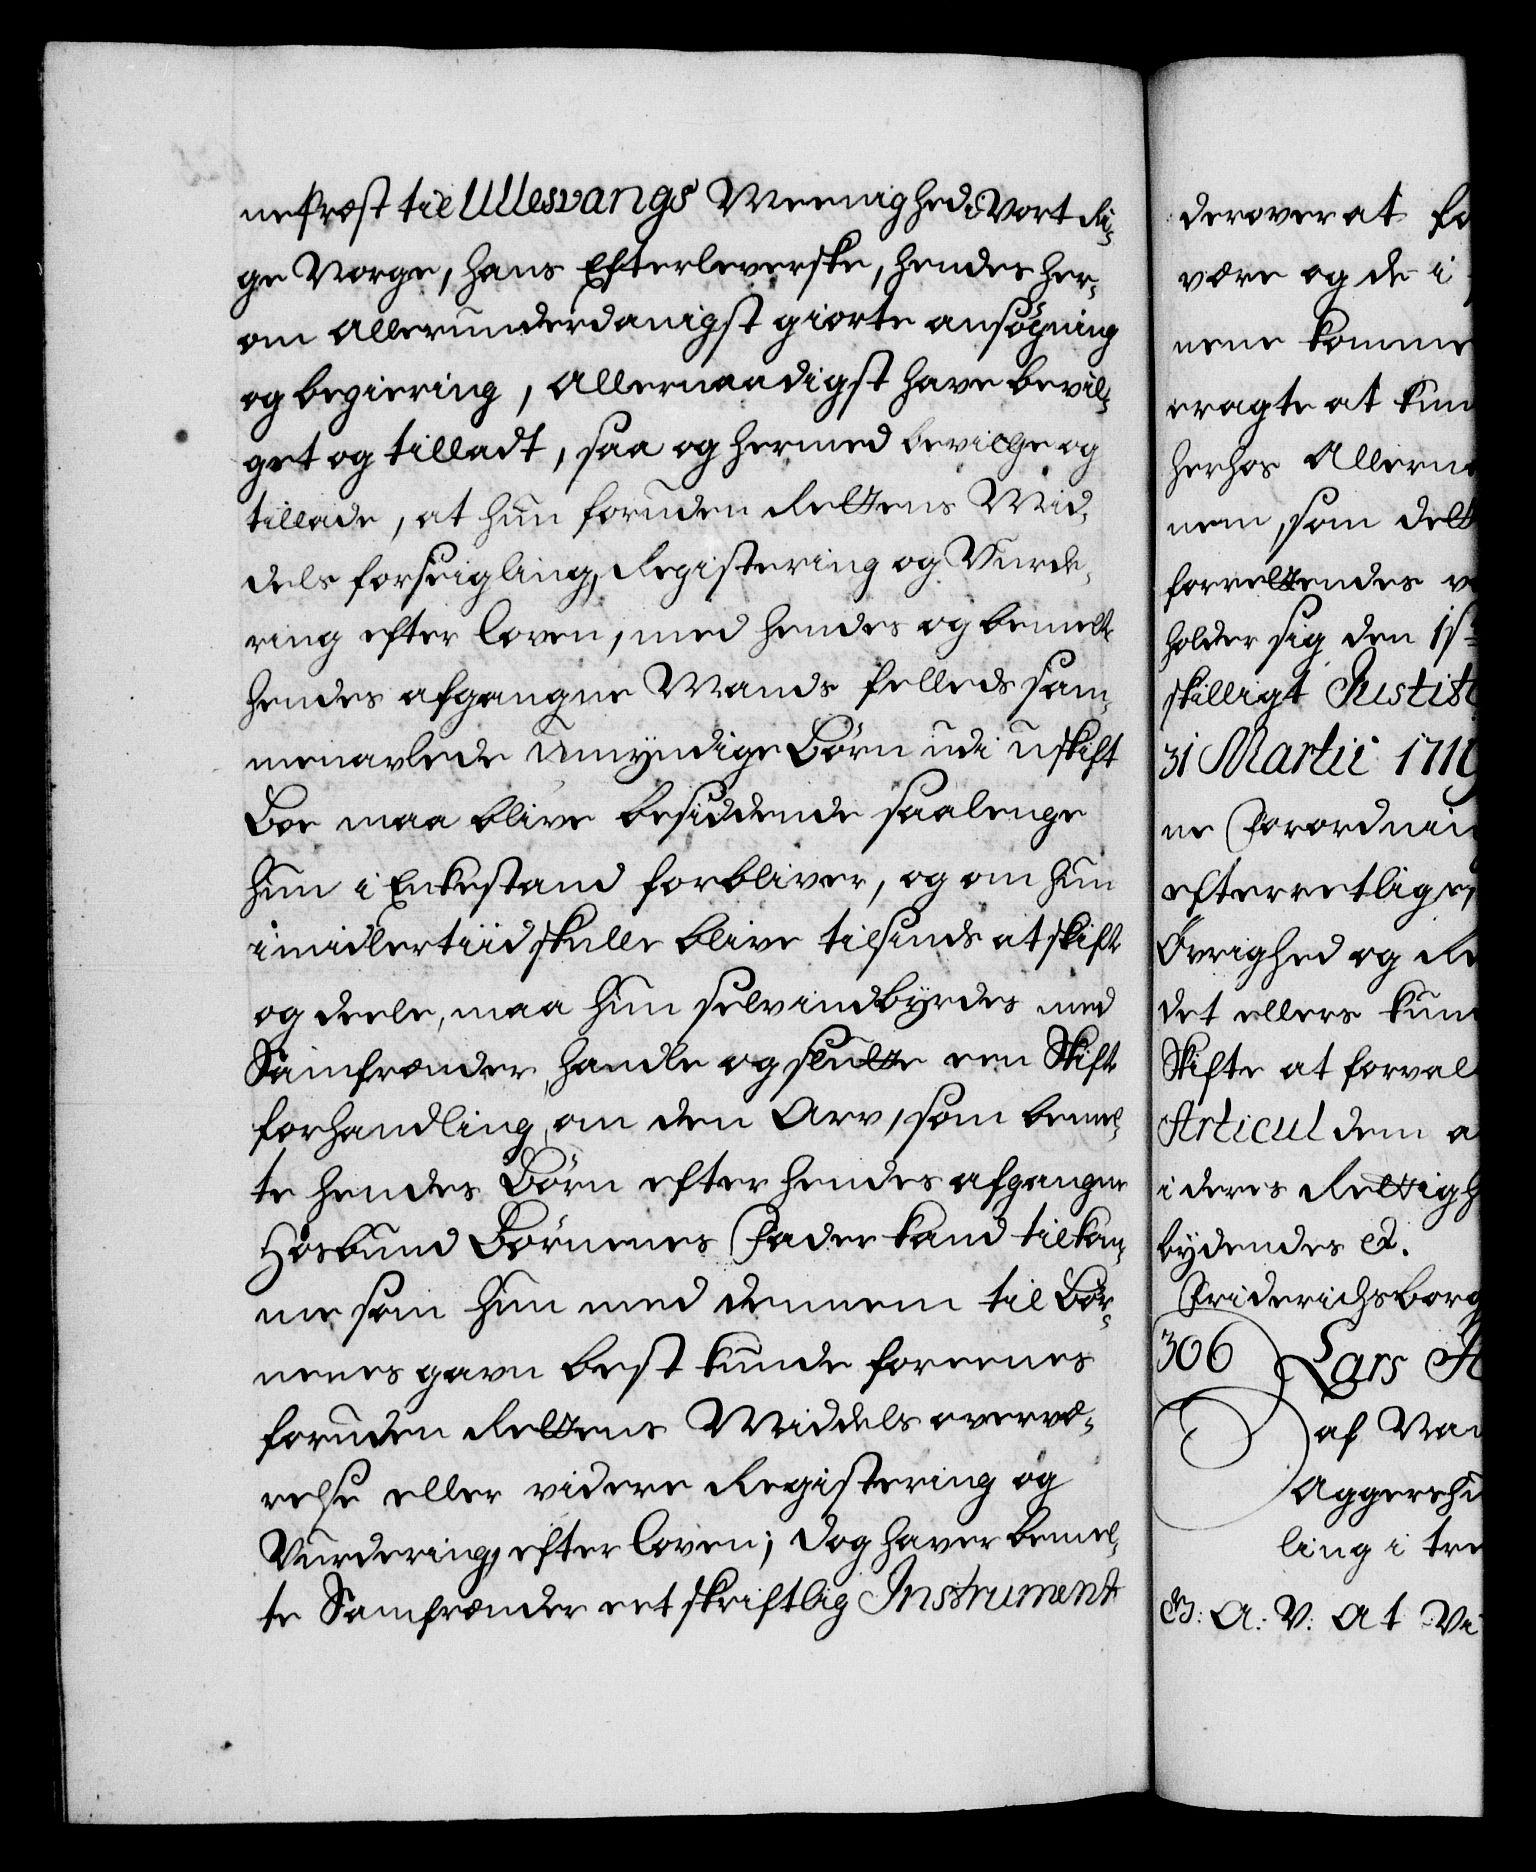 nepræst til Ullesvangs Meenighed i Vort Ri-
ge Norge, hans Efterleverske, hendes her-
om allerunderdanigst giorte ansøgning
og begiering, allernaadigst have bevil-
get og tilladt, saa og hermed bevilge og
tillade, at hun foruden Rettens Mid-
dels forseigling, Registering og Vurde-
ring efter loven, med hendes og bemelte
hendes afgangne Mands felleds sam-
menavlede umyndige Børn udi uskift
Boe maa blive besiddende saalenge
hun i Enkestand forbliver, og om hun
imidlertiid skulle blive tilsinds at skifte
og deele, maa hun selv indbyrdes med
Samfrænder, handle og slutte een Skifte
forhandling, om den Arv, som bemel-
te hendes Børn efter hendes afgangne
Hosbund Børnenes Fader kand tilkom-
me som hun med dennem til Bør-
nenes gavn best kunde foreenes
foruden Rettens Middels overvæ-
relse eller videre Registering og
Vurdering, efter loven; dog haver bemel-
te Samfrænder eet skriftlig Instrument
deroverat fo
være og de i
nene komme
eragte at kun
herhos Allerna
nem, som dett
forrettendes v
holder sig den 1ste
skilligt Justit
31 Martii 1719
ne Forordnin
efterretlige,
Øvrighed og Re
det ellers kun
Skifte at forval
Articul dem a
i deres Rettigh
bydendes etc.
Friderichsborg
306 Lars A
af Nan
Aggershu
ling i tre
G: A: V: At Vi